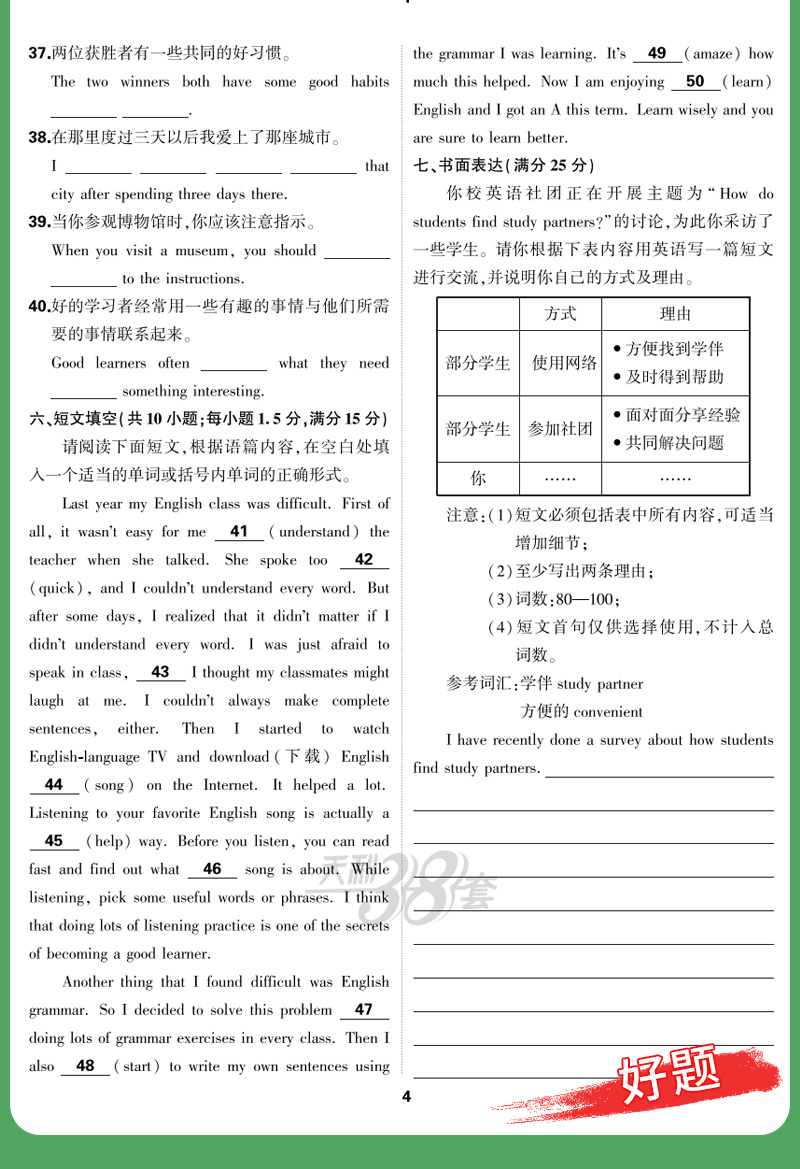 37.两位获胜者有一些共同的好习惯。
The two winners both have some good habits
________ ________.
38.在那里度过三天以后我爱上了那座城市。
I ________ ________ ________ ________ that
city after spending three days there.
39.当你参观博物馆时,你应该注意指示。
When you visit a museum, you should ________
________ to the instructions.
40.好的学习者经常用一些有趣的事情与他们所需
要的事情联系起来。
Good learners often ________ what they need
________ something interesting.
六、短文填空(共10小题;每小题1.5分,满分15分)
请阅读下面短文,根据语篇内容,在空白处填
入一个适当的单词或括号内单词的正确形式。
Last year my English class was difficult. First of
all, it wasn't easy for me 41 (understand) the
teacher when she talked. She spoke too 42
(quick), and I couldn't understand every word. But
after some days, I realized that it didn't matter if I
didn't understand every word. I was just afraid to
speak in class, 43 I thought my classmates might
laugh at me. I couldn't always make complete
sentences, either. Then I started to watch
English-language TV and download(下载) English
44 (song) on the Internet. It helped a lot.
Listening to your favorite English song is actually a
45 (help) way. Before you listen, you can read
fast and find out what 46 song is about. While
listening, pick some useful words or phrases. I think
that doing lots of listening practice is one of the secrets
of becoming a good learner.
Another thing that I found difficult was English
grammar. So I decided to solve this problem 47
doing lots of grammar exercises in every class. Then I
also 48 (start) to write my own sentences using
the grammar I was learning. It's 49 (amaze) how
much this helped. Now I am enjoying 50 (learn)
English and I got an A this term. Learn wisely and you
are sure to learn better.
七、书面表达(满分25分)
你校英语社团正在开展主题为“How do
students find study partners?”的讨论,为此你采访了
一些学生。请你根据下表内容用英语写一篇短文
进行交流,并说明你自己的方式及理由。
方式 理由
部分学生 使用网络 ●方便找到学伴
●及时得到帮助
部分学生 参加社团 ●面对面分享经验
●共同解决问题
你 …… ……
注意:(1)短文必须包括表中所有内容,可适当
增加细节;
(2)至少写出两条理由;
(3)词数:80—100;
(4)短文首句仅供选择使用,不计入总
词数。
参考词汇:学伴 study partner
方便的 convenient
I have recently done a survey about how students
find study partners.
天利38套
好题
4